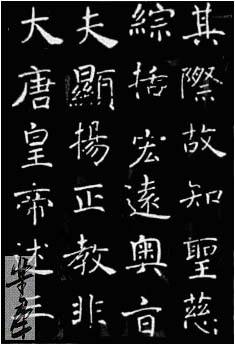 大唐皇帝述三
夫顯揚正教非
綜括宏遠奧旨
其際故知聖慈